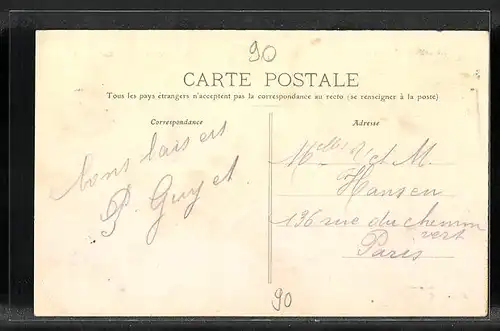 90
CARTE POSTALE
Tous les pays étrangers n'acceptent pas la correspondance au recto (se renseigner à la poste)
Correspondance
Adresse
bons baisers
P. Guyet
Melles et M.
Hansen
136 rue du chemin
vert
Paris
90